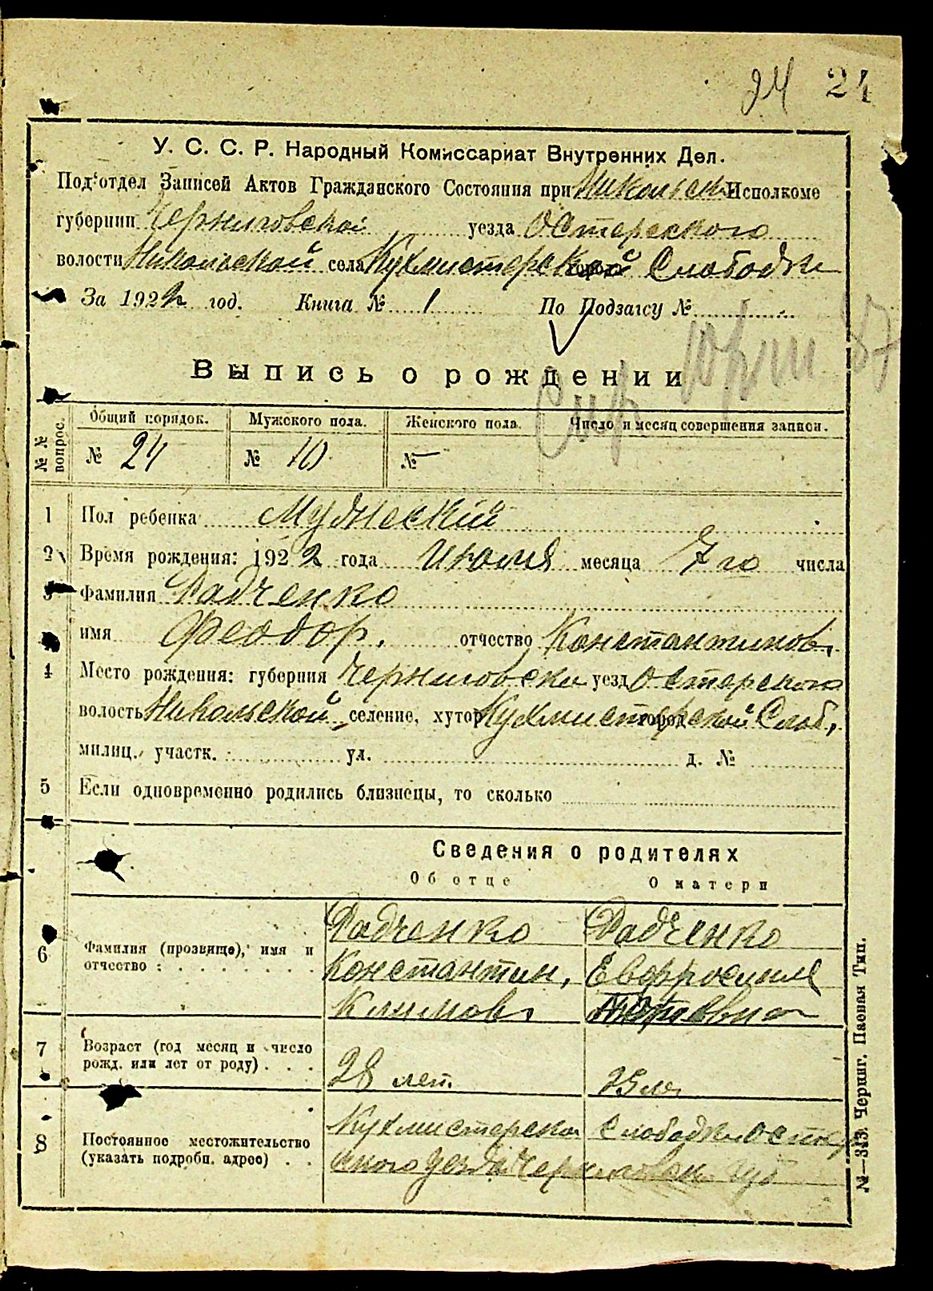 24 24
У. С. С. Р. Народный Комиссариат Внутренних Дел.
Под‘отдел Записей Актов Гражданского Состояния при Никольск Исполкоме
губернии Черниговской уезда Остерского
волости Никольской села Кухмистерской Слободки
За 1922 год. Книга № 1 По Подзагсу №
Выпись о рождении
№№ вопрос. Общий порядок. Мужского пола. Женского пола. Число и месяц совершения записи.
№ 24 № 10 №
1 Пол ребенка Мужеский
2 Время рождения: 1922 года Июля месяца 7го числа
3 Фамилия Радченко
имя Феодор. отчество Константинов.
4 Место рождения: губерния Черниговской уезд Остерского
волость Никольской селение, хутор, город Кухмистерской Слоб.
милиц. участк. ул. д. №
5 Если одновременно родились близнецы, то сколько
Сведения о родителях
Об отце О матери
6 Фамилия (прозвище), имя и отчество :
Радченко Радченко
Константин, Евфросиния
Климов.
7 Возраст (год месяц и число рожд. или лет от роду)
28 лет 25 лет
8 Постоянное местожительство (указать подробн. адрес)
Кухмистерская Слободка Остер
ского уезда Черниговской губ
№—313. Черниг. Паевая Тип.